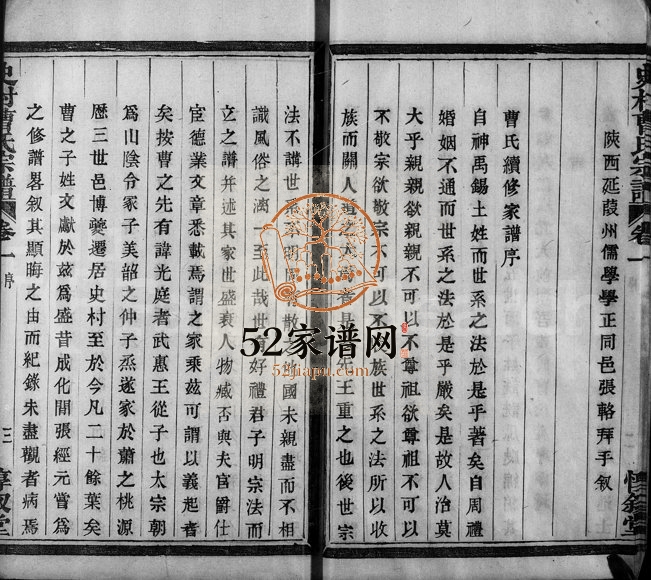 陝西延葭州儒學學正同邑張輅拜手叙
曹氏續修家譜序
自神禹錫土姓而世系之法於是乎著矣自周禮
婚姻不通而世系之法於是乎嚴矣是故人治莫
大乎親親欲親親不可以不尊祖欲尊祖不可以
不敬宗欲敬宗不可以不族世系之法所以收
族而關人之大是先王重之也後世宗
史村曹氏宗譜
卷一
惇叙堂
法不講世系不明散國未親盡而不相
識風俗之漓一至此哉世好禮君子明宗法而
立之譜并述其家世盛衰人物臧否與夫官爵仕
宦德業文章悉載焉謂之家乘茲可謂以義起者
矣按曹之先有諱光庭者武惠王從子也太宗朝
爲山陰令冢子美韶之仲子烝遂家於蕭之桃源
歷三世邑博夔遷居史村至於今凡二十餘葉矣
曹之子姓文獻於茲爲盛昔成化間張經元嘗爲
之修譜畧叙其顯晦之由而紀錄未盡觀者病焉
史村曹氏宗譜
卷一
序
三
惇叙堂
52家谱网
52jiapu.com